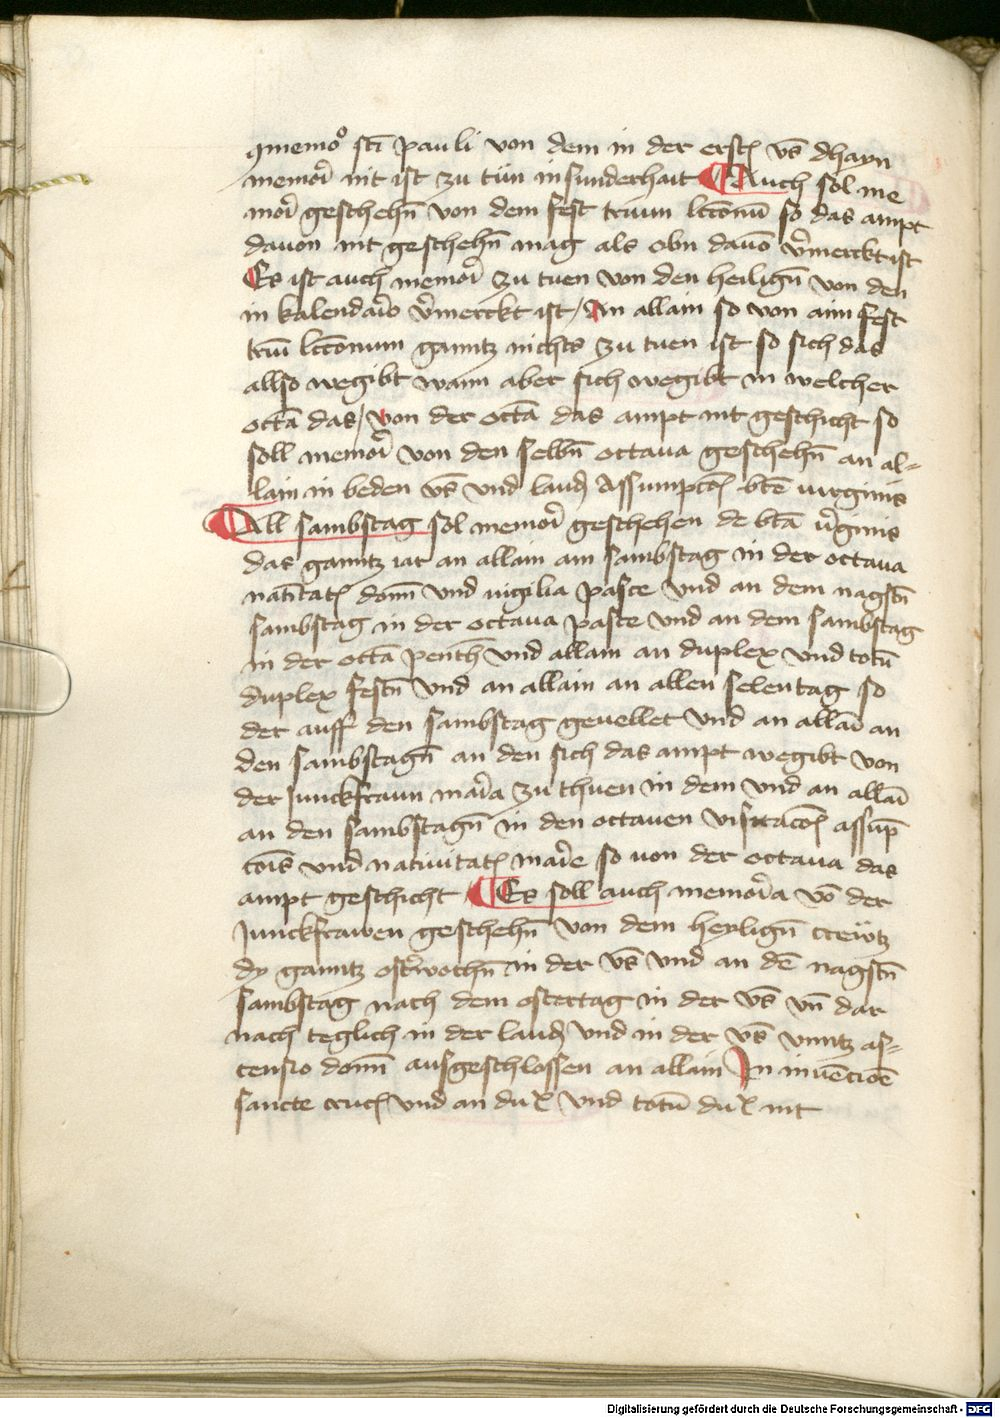 9memo° sti pauli von dem in der erst vs dhayn
memori nit ist zu tün in sunderhait Auch sol me
mori geschehn̄ von dem fest trium lcc̄onū so das ampt
dauon nit geschehn̄ mag als obn dauō v̄merckt ist
Es ist auch memori zu tuen von den heilign̄ von den
in kalendario v̄merckt ist / An allain so von aim fest
triū lcc̄onum ganntz nichts zu tuen ist so sich das
allso wegibt wann aber sich wegibt in welcher
octā das / von der octā das ampt nit geschicht so
soll memori von den selbn̄ octaua geschehn̄ an al=
lain in beden vs̄ vnd laud Assumptōis btē virginis
All sambstag sol memori geschehen de btā v̄ginis
das ganntz iar an allain am sambstag in der octaua
natītatis domī vnd vigilia pasce vnd an dem nagstn̄
sambstag in der octaua pasce vnd an dem sambstag
in der octā pentħ vnd allain an duplex vnd totū
duplex festn̄ vnd an allain an allen selentag so
der auff den sambstag geuellet vnd an allaī an
den sambstagn̄ an den sich das ampt wegibt von
der Junckfraun maria zu thuen in dem vnd an allaī
an den sambstagn̄ in den octauen visitacōis assūp
tōis vnd natiuitatis marie so von der octaua das
ampt geschicht Es soll auch memoria vō der
Junckfrawen geschehn̄ von dem heylign̄ creẅtz
dy ganntz ost̄wochn̄ in der vs̄ vnd an dē nagstn̄
sambstag nach dem ostertag in der vs̄ vn̄ dar
nach teglich in der laud vnd in der vs̄ vnntz as=
censio domī ausgeschlossen an allain In inuēcioē
sancte crucis vnd an dux vnd totū dux nit
Digitalisierung gefördert durch die Deutsche Forschungsgemeinschaft - DFG